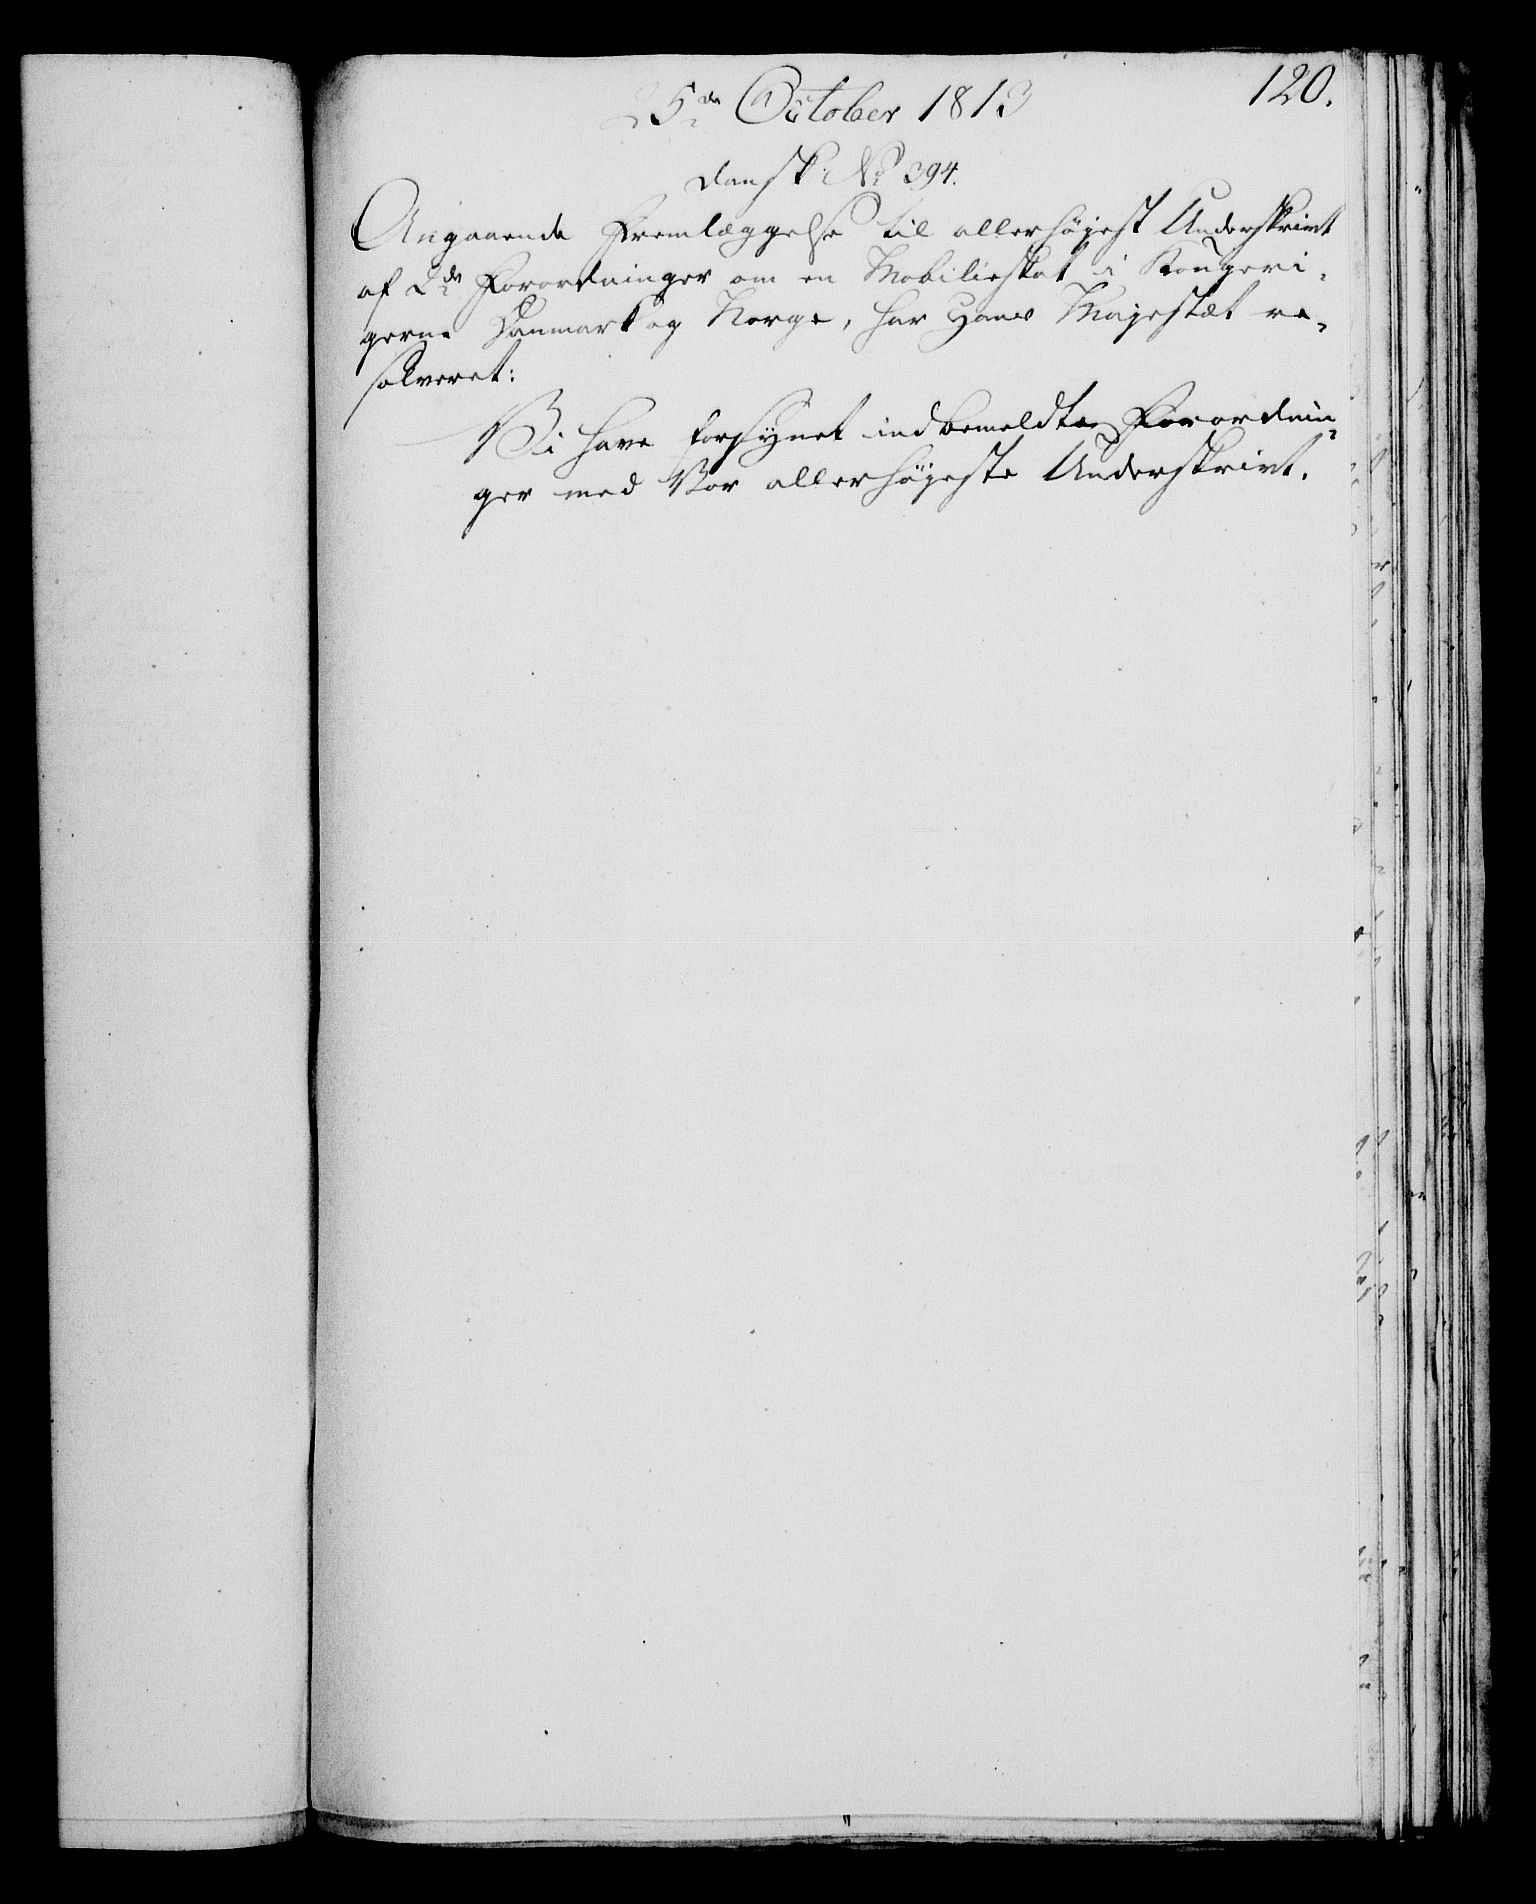 120.
25de October 1813
dansk: No 394.
Angaaende Fremlæggelse til allerhøjest Underskrivt
af 2de Forordninger om en Mobilieskat i Kongeri-
gerne Danmark og Norge, har Hans Majestæt re-
solveret:
Vi have forsynet indbemeldte Forordnin-
ger med Vor allerhøjeste Underskrivt.